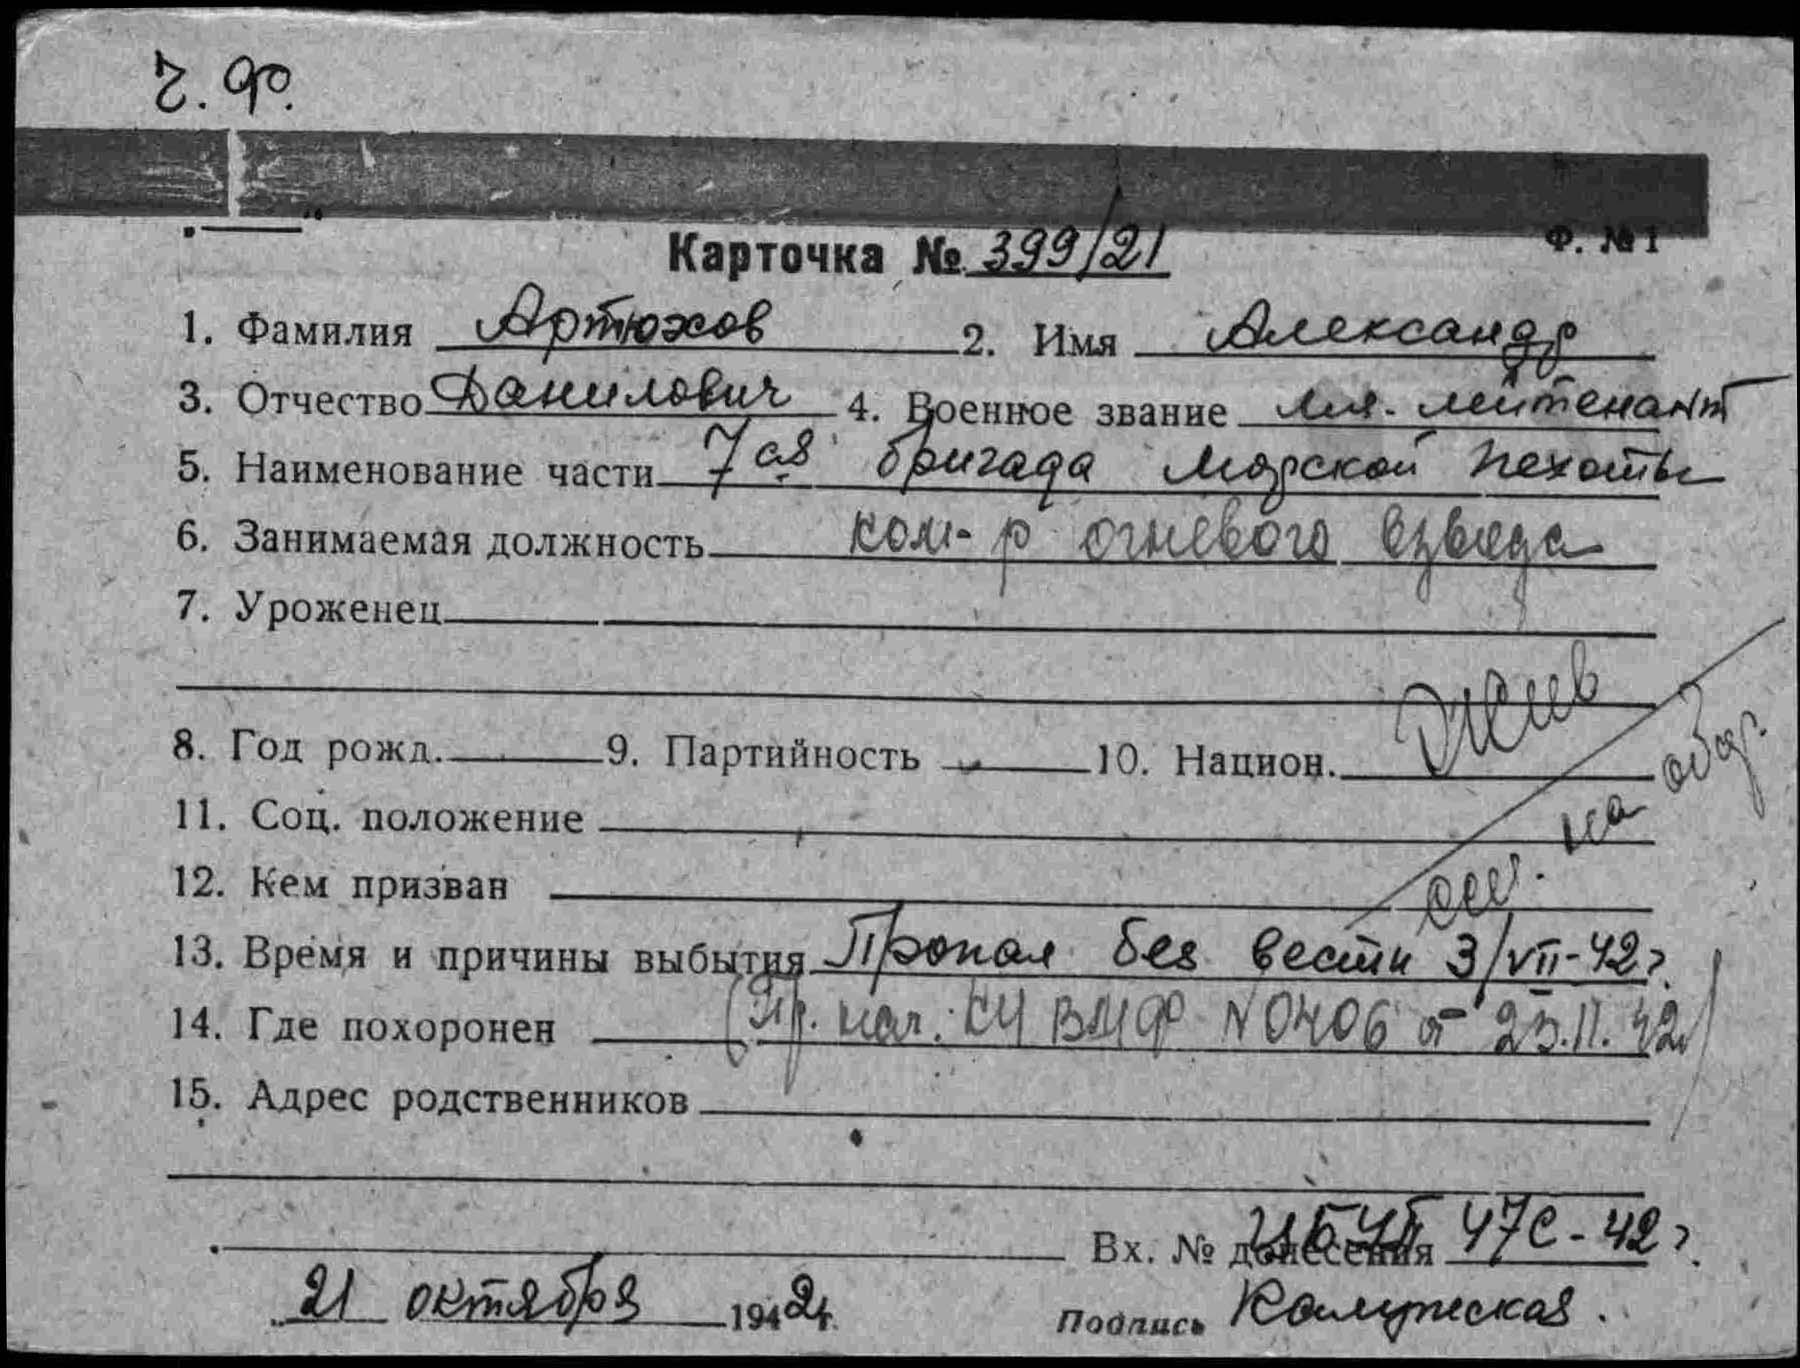 Ч. Ф.
Ф. № 1
Карточка № 399/21
1. Фамилия Артюхов 2. Имя Александр
3. Отчество Данилович 4. Военное звание мл. лейтенант
5. Наименование части 7ая бригада морской пехоты
6. Занимаемая должность ком-р огневого взвода
7. Уроженец
8. Год рожд. 9. Партийность 10. Национ.
Жив
см. на обор.
11. Соц. положение
12. Кем призван
13. Время и причины выбытия Пропал без вести 3/VII-42г.
14. Где похоронен (Пр. нач. КУ ВМФ № 0406 от 23.11.42)
15. Адрес родственников
Вх. № донесения 47с-42г.
21 октября 1942г.
Подпись Калужская.